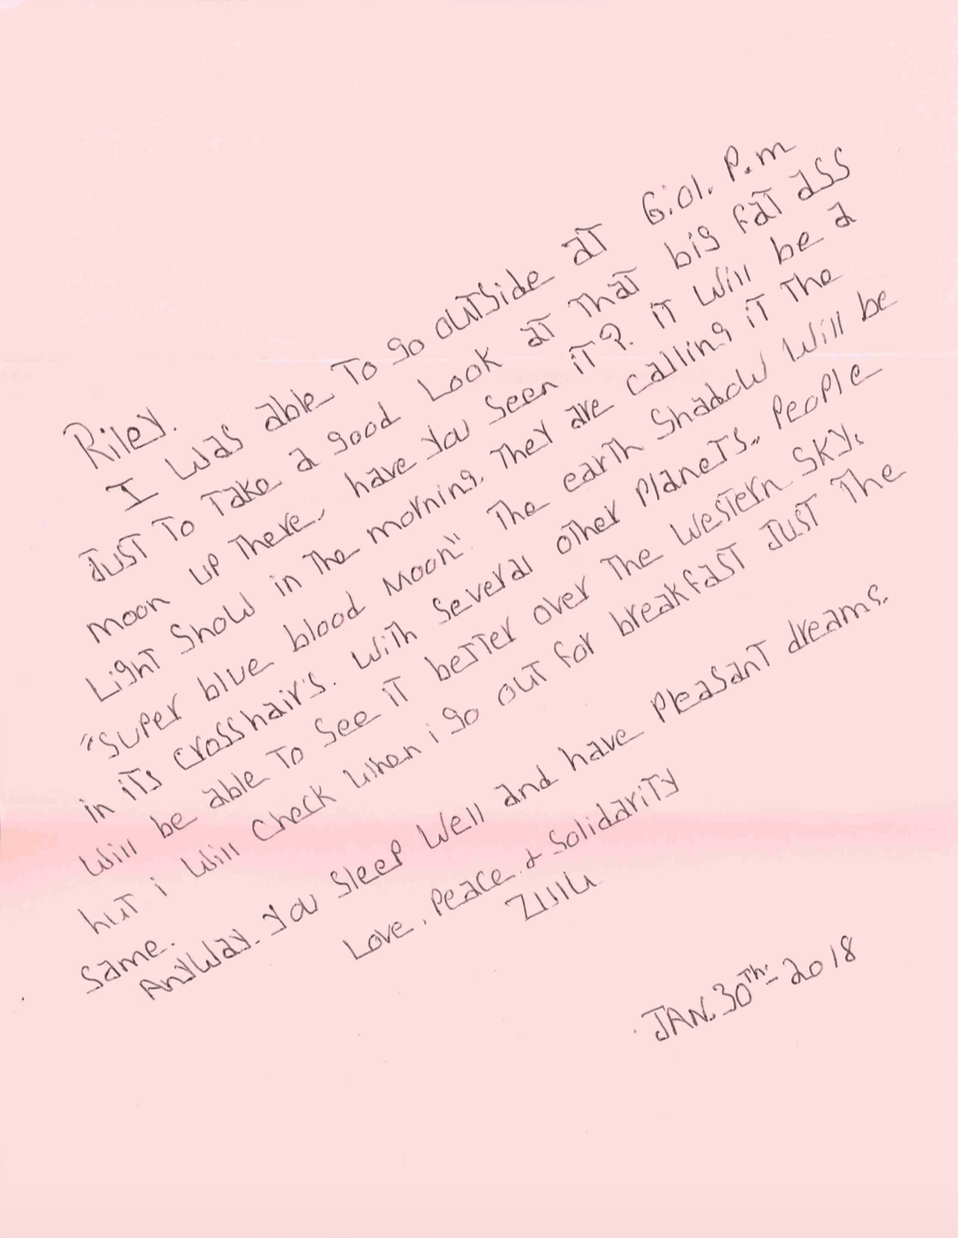 Riley.
I was able to go outside at 6:01. P.m
Just to take a good look at that big fat ass
moon up there, have you seen it? it will be a
Light show in the morning, they are calling it the
"super blue blood moon". The earth shadow will be
in its crosshair's. with several other planets.. People
will be able to see it better over the western sky,
but i will check when i go out for breakfast just the
same.
Anyway. you sleep well and have pleasant dreams.
Love, Peace. & Solidarity
Zulu
JAN. 30th:- 2018